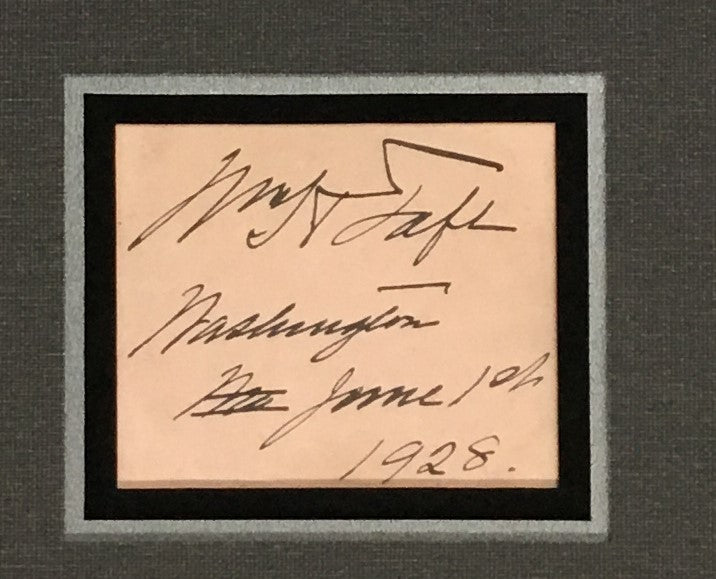 Wm H Taft
Washington
June 1st
1928.